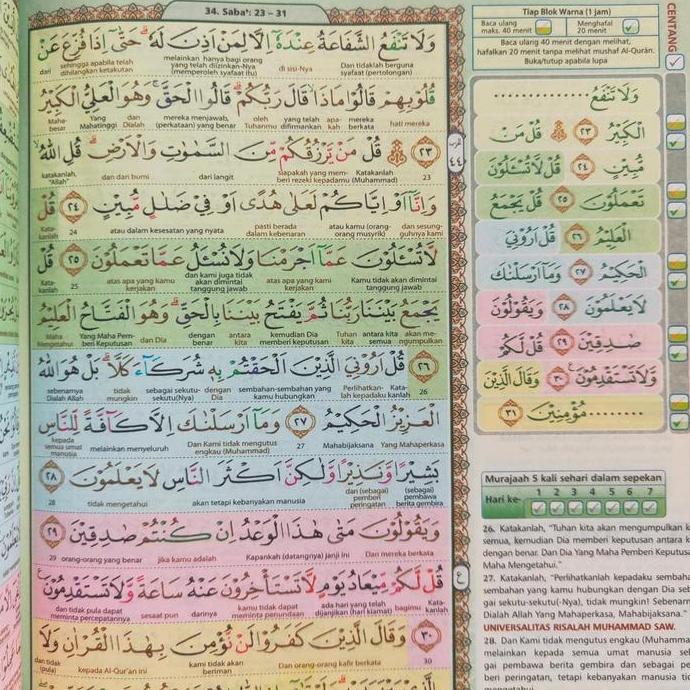 34. Saba': 23 – 31
وَلَا تَنْفَعُ الشَّفَاعَةُ عِنْدَهٗٓ اِلَّا لِمَنْ اَذِنَ لَهٗۗ حَتّٰىٓ اِذَا فُزِّعَ عَنْ
dari sehingga apabila telah dihilangkan ketakutan melainkan hanya bagi orang yang telah diizinkan-Nya (memperoleh syafaat itu) di sisi-Nya Dan tidaklah berguna syafaat (pertolongan)
قُلُوْبِهِمْ قَالُوْا مَاذَاۙ قَالَ رَبُّكُمْۗ قَالُوا الْحَقَّۚ وَهُوَ الْعَلِيُّ الْكَبِيْرُ
Maha- besar Yang Mahatinggi dan Dialah mereka menjawab, (perkataan) yang benar oleh Tuhanmu yang telah difirmankan apa- kah mereka berkata hati mereka
٢٣ ۞ قُلْ مَنْ يَّرْزُقُكُمْ مِّنَ السَّمٰوٰتِ وَالْاَرْضِۗ قُلِ اللّٰهُ
katakanlah, "Allah" dan dari bumi dari langit siapakah yang mem- beri rezeki kepadamu Katakanlah (Muhammad) 23
وَاِنَّآ اَوْ اِيَّاكُمْ لَعَلٰى هُدًى اَوْ فِيْ ضَلٰلٍ مُّبِيْنٍ ٢٤ قُلْ
Kata- kanlah 24 atau dalam kesesatan yang nyata pasti berada dalam kebenaran atau kamu (orang- orang musyrik) dan sesung- guhnya kami
لَّا تُسْـَٔلُوْنَ عَمَّآ اَجْرَمْنَا وَلَا نُسْـَٔلُ عَمَّا تَعْمَلُوْنَ ٢٥ قُلْ
Kata- kanlah 25 atas apa yang kamu kerjakan dan kami juga tidak akan dimintai tanggung jawab atas apa yang kami kerjakan Kamu tidak akan dimintai tanggung jawab
يَجْمَعُ بَيْنَنَا رَبُّنَا ثُمَّ يَفْتَحُ بَيْنَنَا بِالْحَقِّۗ وَهُوَ الْفَتَّاحُ الْعَلِيْمُ
Maha Mengetahui Yang Maha Pem- beri Keputusan dan Dia dengan benar antara kita kemudian Dia memberi keputusan Tuhan kita antara kita semua akan me- ngumpulkan
٢٦ قُلْ اَرُوْنِيَ الَّذِيْنَ اَلْحَقْتُمْ بِهٖ شُرَكَاۤءَ كَلَّاۗ بَلْ هُوَ اللّٰهُ
sebenarnya Dialah Allah tidak mungkin sebagai sekutu- sekutu(Nya) dengan Dia sembahan-sembahan yang kamu hubungkan Perlihatkan- lah kepadaku Kata- kanlah 26
الْعَزِيْزُ الْحَكِيْمُ ٢٧ وَمَآ اَرْسَلْنٰكَ اِلَّا كَاۤفَّةً لِّلنَّاسِ
kepada semua umat manusia melainkan menyeluruh Dan Kami tidak mengutus engkau (Muhammad) 27 Mahabijaksana Yang Mahaperkasa
بَشِيْرًا وَّنَذِيْرًا وَّلٰكِنَّ اَكْثَرَ النَّاسِ لَا يَعْلَمُوْنَ ٢٨
28 tidak mengetahui akan tetapi kebanyakan manusia dan (sebagai) pemberi peringatan (sebagai) pembawa berita gembira
وَيَقُوْلُوْنَ مَتٰى هٰذَا الْوَعْدُ اِنْ كُنْتُمْ صٰدِقِيْنَ ٢٩
29 orang-orang yang benar jika kamu adalah Kapankah (datangnya) janji ini Dan mereka berkata
قُلْ لَّكُمْ مِّيْعَادُ يَوْمٍ لَّا تَسْتَأْخِرُوْنَ عَنْهُ سَاعَةً وَّلَا تَسْتَقْدِمُوْنَ
dan tidak pula dapat meminta percepatannya sesaat pun darinya kamu tidak dapat meminta penundaan ada hari yang telah dijanjikan (hari kiamat) bagimu Kata- kanlah
٣٠ وَقَالَ الَّذِيْنَ كَفَرُوْا لَنْ نُّؤْمِنَ بِهٰذَا الْقُرْاٰنِ وَلَا
dan tidak (pula) kepada Al-Qur'an ini kami tidak akan beriman Dan orang-orang kafir berkata 30
٤٤
Tiap Blok Warna (1 jam)
Baca ulang maks. 40 menit
Menghafal 20 menit
Baca ulang 40 menit dengan melihat,
hafalkan 20 menit tanpa melihat mushaf Al-Qurán.
Buka/tutup apabila lupa
CENTANG
وَلَا تَنْفَعُ ..............
الْكَبِيْرُ ٢٣ ۞ قُلْ مَنْ
مُّبِيْنٍ ٢٤ قُلْ لَّا تُسْـَٔلُوْنَ
تَعْمَلُوْنَ ٢٥ قُلْ يَجْمَعُ
الْعَلِيْمُ ٢٦ قُلْ اَرُوْنِيَ
الْحَكِيْمُ ٢٧ وَمَآ اَرْسَلْنٰكَ
لَا يَعْلَمُوْنَ ٢٨ وَيَقُوْلُوْنَ
صٰدِقِيْنَ ٢٩ قُلْ لَّكُمْ
وَّلَا تَسْتَقْدِمُوْنَ ٣٠ وَقَالَ الَّذِيْنَ
......... مُؤْمِنِيْنَ ٣١
Murajaah 5 kali sehari dalam sepekan
Hari ke- 1 2 3 4 5 6 7
26. Katakanlah, "Tuhan kita akan mengumpulkan k
semua, kemudian Dia memberi keputusan antara k
dengan benar. Dan Dia Yang Maha Pemberi Keputusa
Maha Mengetahui."
27. Katakanlah, "Perlihatkanlah kepadaku sembaha
sembahan yang kamu hubungkan dengan Dia seb
gai sekutu-sekutu(-Nya), tidak mungkin! Sebenarn
Dialah Allah Yang Mahaperkasa, Mahabijaksana."
UNIVERSALITAS RISALAH MUHAMMAD SAW.
28. Dan Kami tidak mengutus engkau (Muhamma
melainkan kepada semua umat manusia seb
gai pembawa berita gembira dan sebagai pe
beri peringatan, tetapi kebanyakan manusia tid